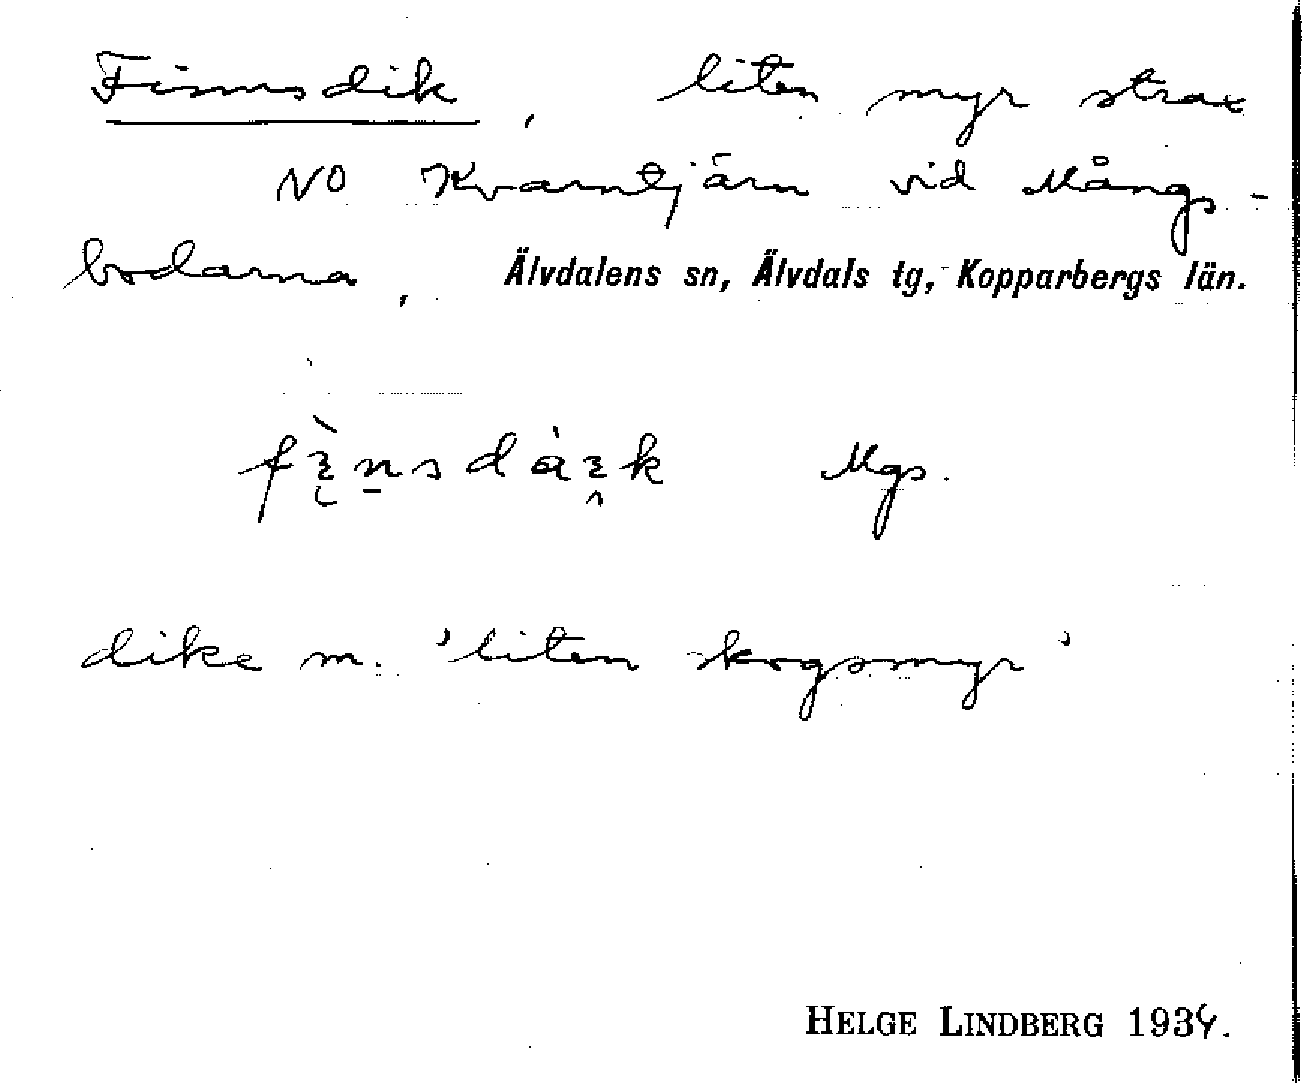 Finnsdik, liten myr strax
NO Kvarntjärn vid Mångs-
bodarna, Älvdalens sn, Älvdals tg, Kopparbergs län.
Mgs.
dike m. 'liten skogsmyr'
HELGE LINDBERG 1934.